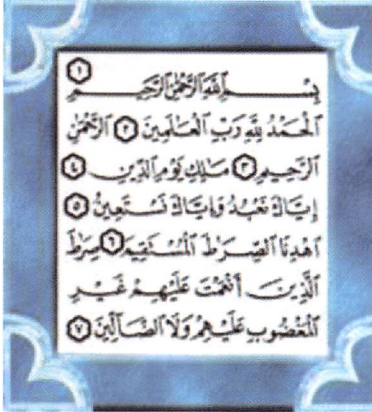 بِسْمِ اللَّهِ الرَّحْمَٰنِ الرَّحِيمِ ١
الْحَمْدُ لِلَّهِ رَبِّ الْعَالَمِينَ ٢ الرَّحْمَٰنِ
الرَّحِيمِ ٣ مَلِكِ يَوْمِ الدِّينِ ٤
إِيَّاكَ نَعْبُدُ وَإِيَّاكَ نَسْتَعِينُ ٥
اهْدِنَا الصِّرَطَ الْمُسْتَقِيمَ ٦ صِرَطَ
الَّذِينَ أَنْعَمْتَ عَلَيْهِمْ غَيْرِ
الْمَغْضُوبِ عَلَيْهِمْ وَلَا الضَّالِّينَ ٧